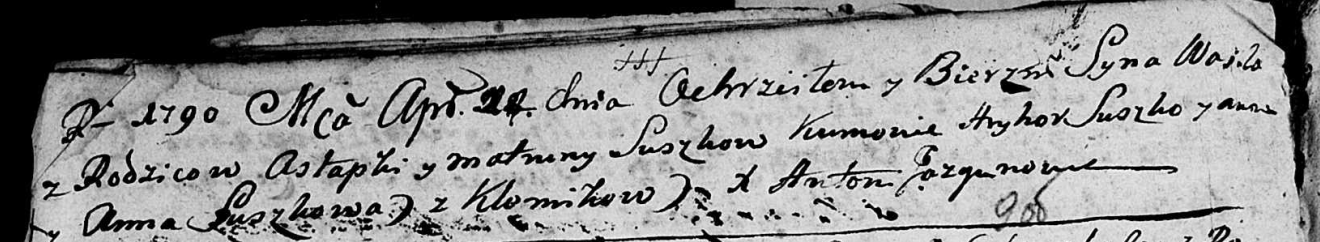 R 1790 Mca Apr. 28. dnia Ochrzciłem y Bierzm Syna Wasila
z Rodzicow Astapki y matruny Suszkow Kumowie Hryhor Suszko y anna
y Anna Suszkowa) z Klonnikow) X Anton Jazgunowicz